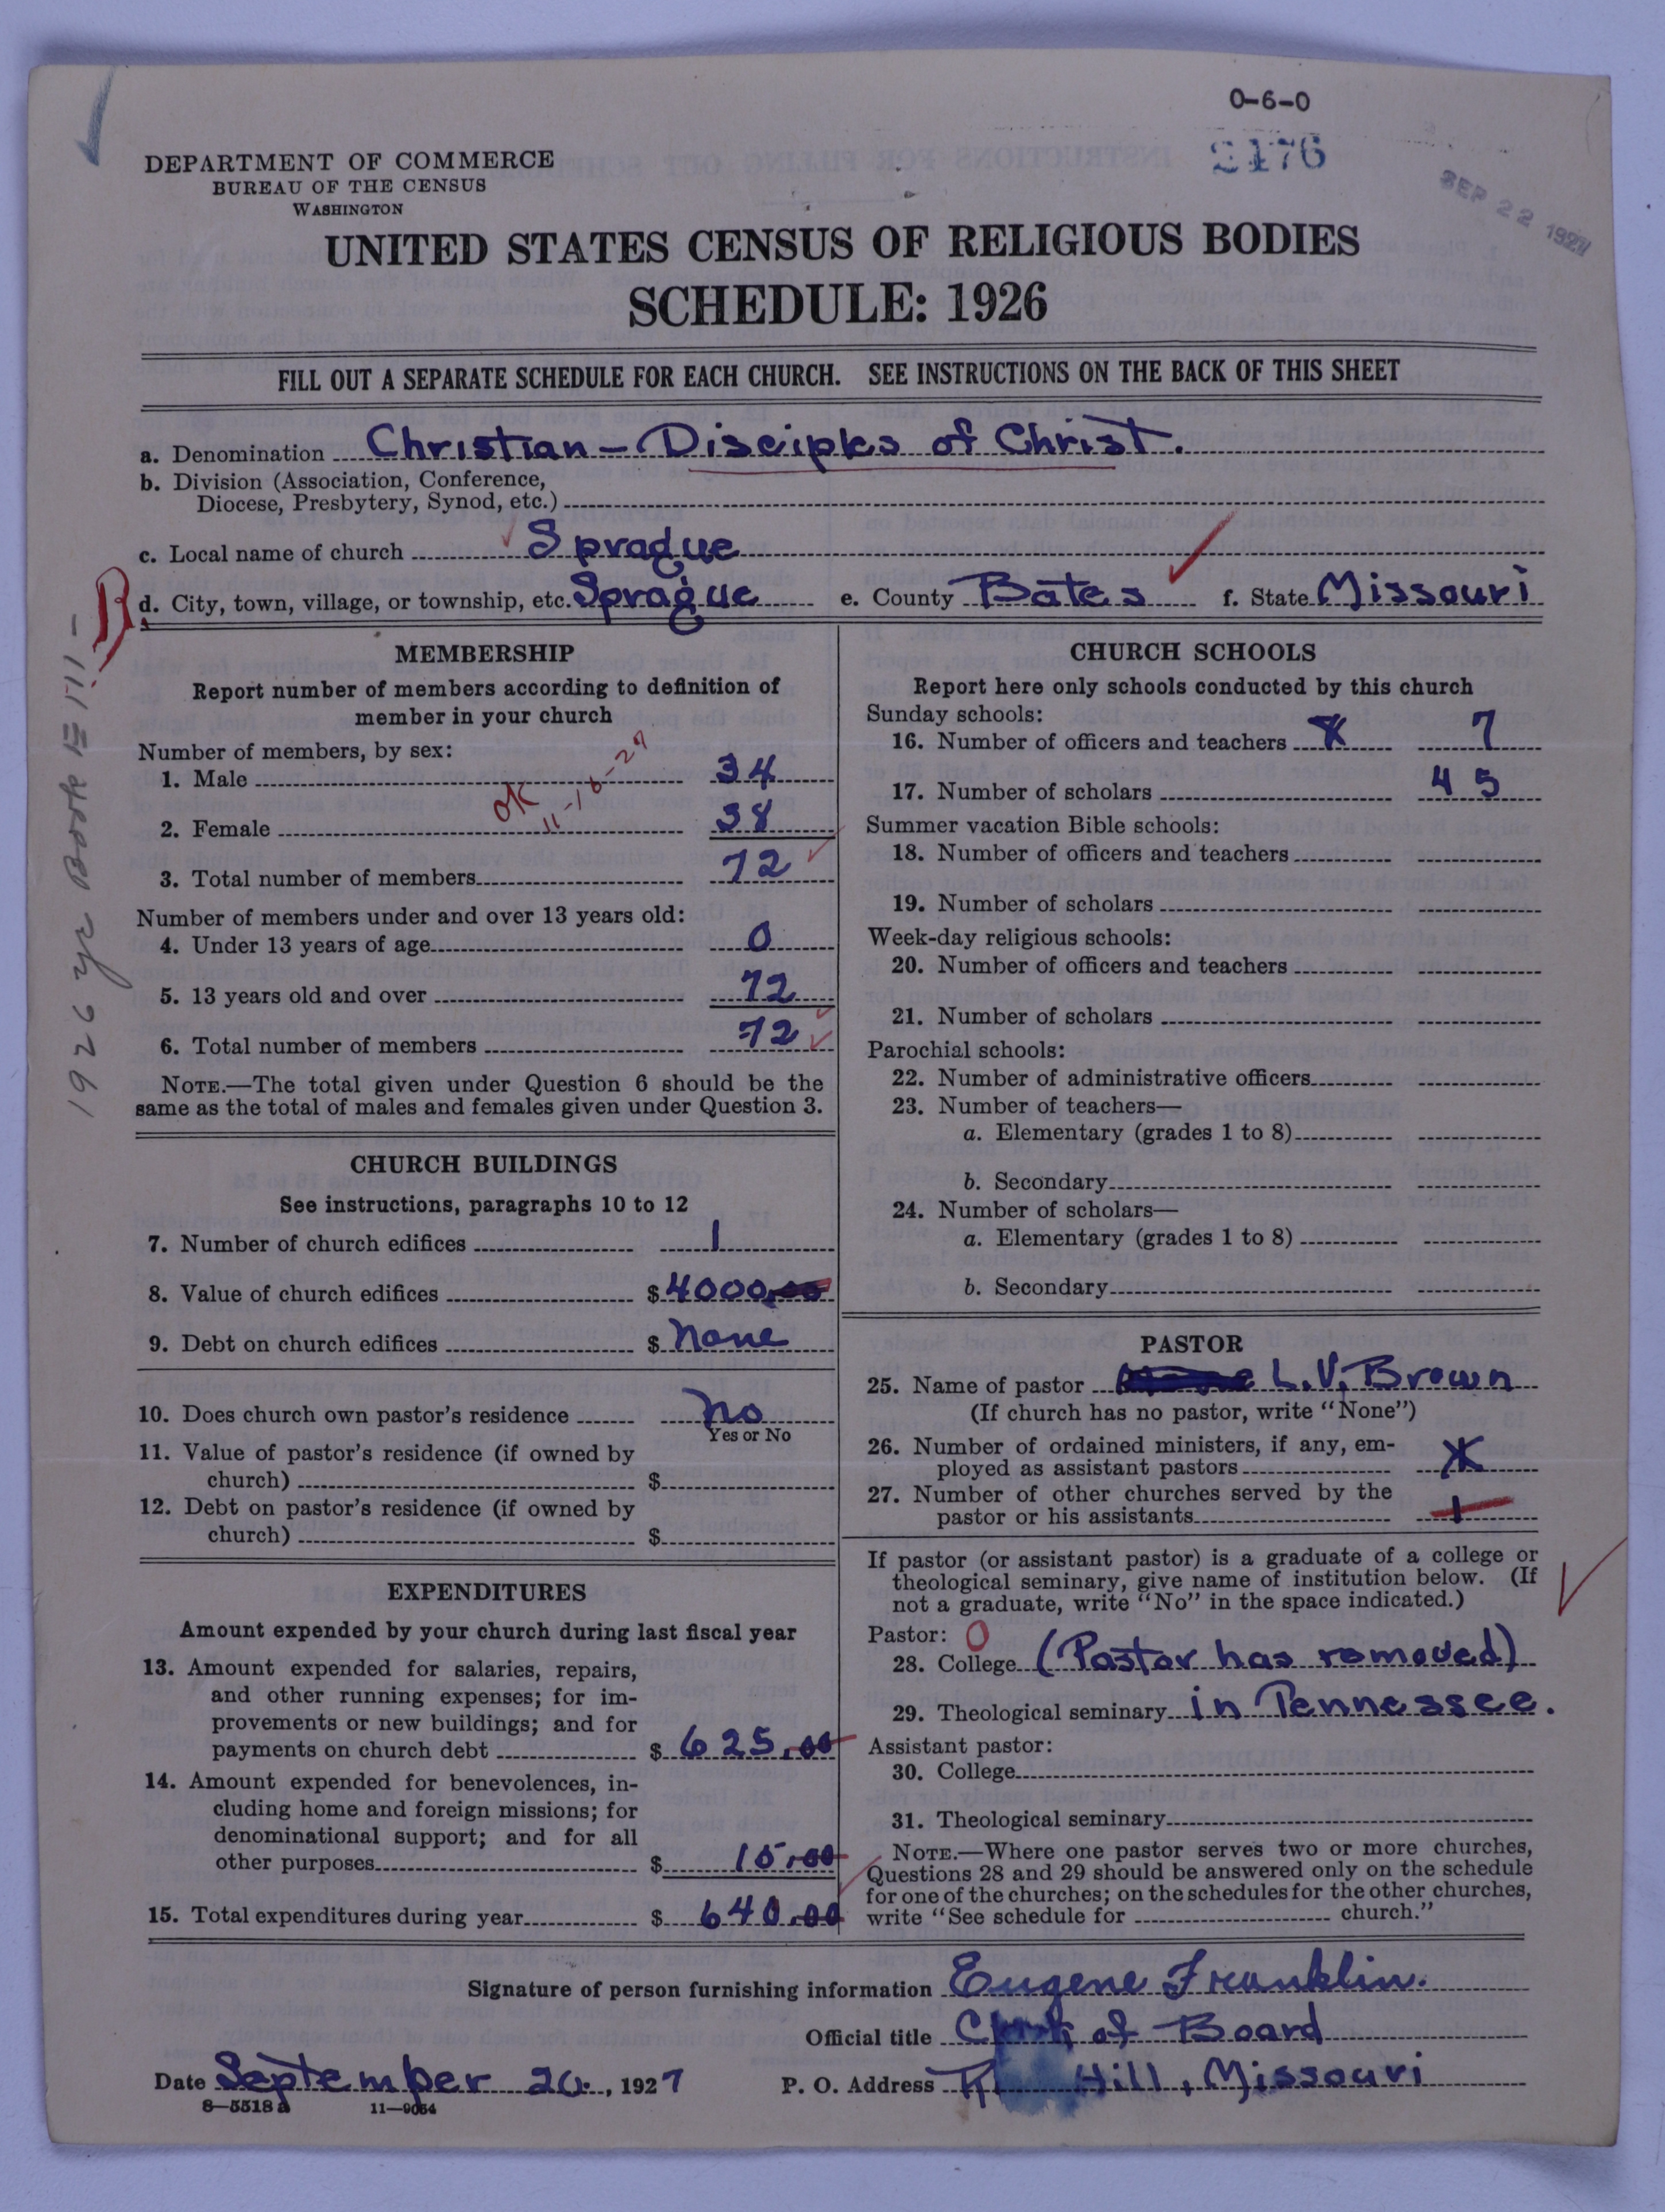 0-6-0
2176
SEP 22 1927
DEPARTMENT OF COMMERCE
BUREAU OF THE CENSUS
WASHINGTON
UNITED STATES CENSUS OF RELIGIOUS BODIES
SCHEDULE: 1926
FILL OUT A SEPARATE SCHEDULE FOR EACH CHURCH. SEE INSTRUCTIONS ON THE BACK OF THIS SHEET
a. Denomination Christian - Disciples of Christ.
b. Division (Association, Conference,
Diocese, Presbytery, Synod, etc.)
c. Local name of church Sprague
d. City, town, village, or township, etc. Sprague e. County Bates f. State Missouri
1926 yr Book
MEMBERSHIP
Report number of members according to definition of
member in your church
Number of members, by sex:
1. Male 34
OK 11-16-27
2. Female 38
3. Total number of members 72
Number of members under and over 13 years old:
4. Under 13 years of age 0
5. 13 years old and over 72
6. Total number of members 72
NOTE.—The total given under Question 6 should be the
same as the total of males and females given under Question 3.
CHURCH BUILDINGS
See instructions, paragraphs 10 to 12
7. Number of church edifices 1
8. Value of church edifices $ 4000.00
9. Debt on church edifices $ None
10. Does church own pastor's residence No
Yes or No
11. Value of pastor's residence (if owned by
church) $
12. Debt on pastor's residence (if owned by
church) $
EXPENDITURES
Amount expended by your church during last fiscal year
13. Amount expended for salaries, repairs,
and other running expenses; for im-
provements or new buildings; and for
payments on church debt $ 625.00
14. Amount expended for benevolences, in-
cluding home and foreign missions; for
denominational support; and for all
other purposes $ 15.00
15. Total expenditures during year $ 640.00
CHURCH SCHOOLS
Report here only schools conducted by this church
Sunday schools:
16. Number of officers and teachers 7
17. Number of scholars 45
Summer vacation Bible schools:
18. Number of officers and teachers
19. Number of scholars
Week-day religious schools:
20. Number of officers and teachers
21. Number of scholars
Parochial schools:
22. Number of administrative officers
23. Number of teachers—
a. Elementary (grades 1 to 8)
b. Secondary
24. Number of scholars—
a. Elementary (grades 1 to 8)
b. Secondary
PASTOR
25. Name of pastor L.V. Brown
(If church has no pastor, write "None")
26. Number of ordained ministers, if any, em-
ployed as assistant pastors
27. Number of other churches served by the
pastor or his assistants 1
If pastor (or assistant pastor) is a graduate of a college or
theological seminary, give name of institution below. (If
not a graduate, write "No" in the space indicated.)
Pastor: 0
28. College (Pastor has removed)
29. Theological seminary in Tennessee.
Assistant pastor:
30. College
31. Theological seminary
NOTE.—Where one pastor serves two or more churches,
Questions 28 and 29 should be answered only on the schedule
for one of the churches; on the schedules for the other churches,
write "See schedule for church."
Signature of person furnishing information Eugene Franklin.
Official title Clerk of Board
Date September 20, 1927 P. O. Address Hill, Missouri
8-5518 a 11-9054